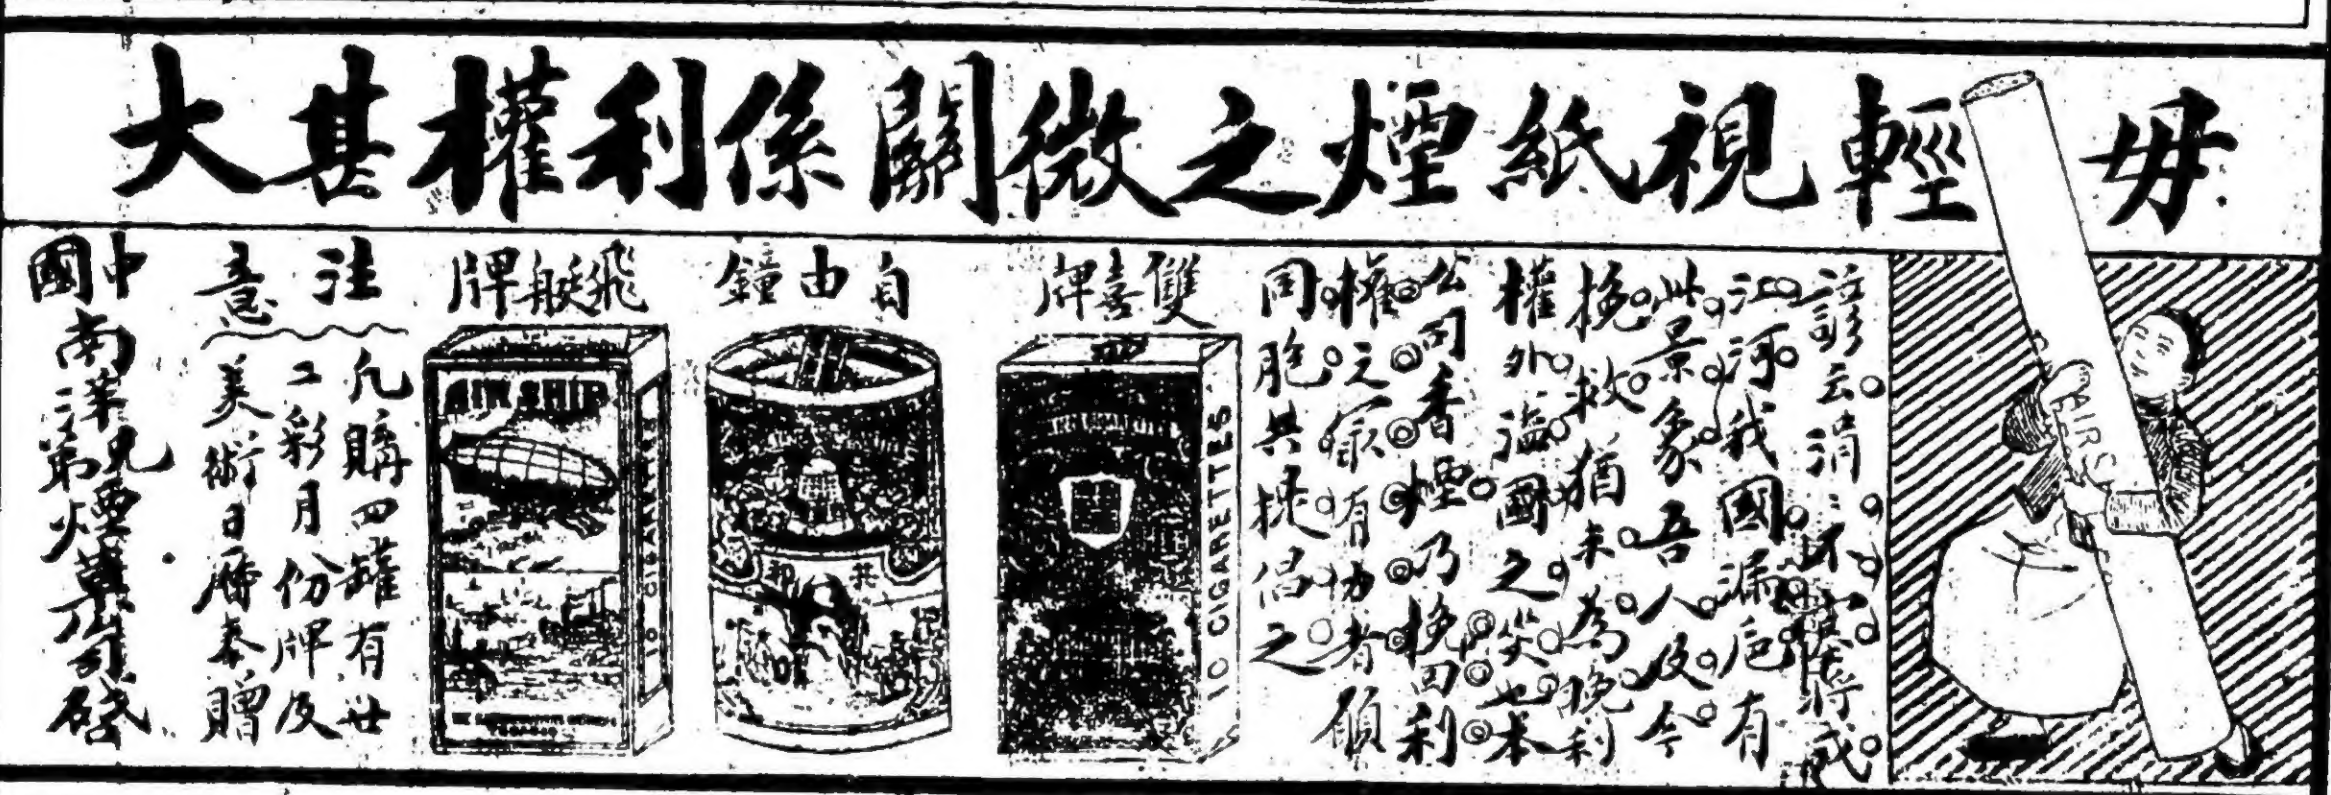 毋輕視紙煙之微關係利權甚大
諺云涓涓不塞將成
江河我國漏巵有
此景象吾人及今
挽救猶未為晚利
權外溢國之災也本
公司香煙乃挽回利
權之最有功者願
同胞共提倡之
雙喜牌
10 CIGARETTES
自由鐘
飛艇牌
AIR SHIP
10 CIGARETTES
注意
凡購四罐有廿
二彩月份牌及
美術日曆奉贈
中國南洋兄弟煙草公司啓